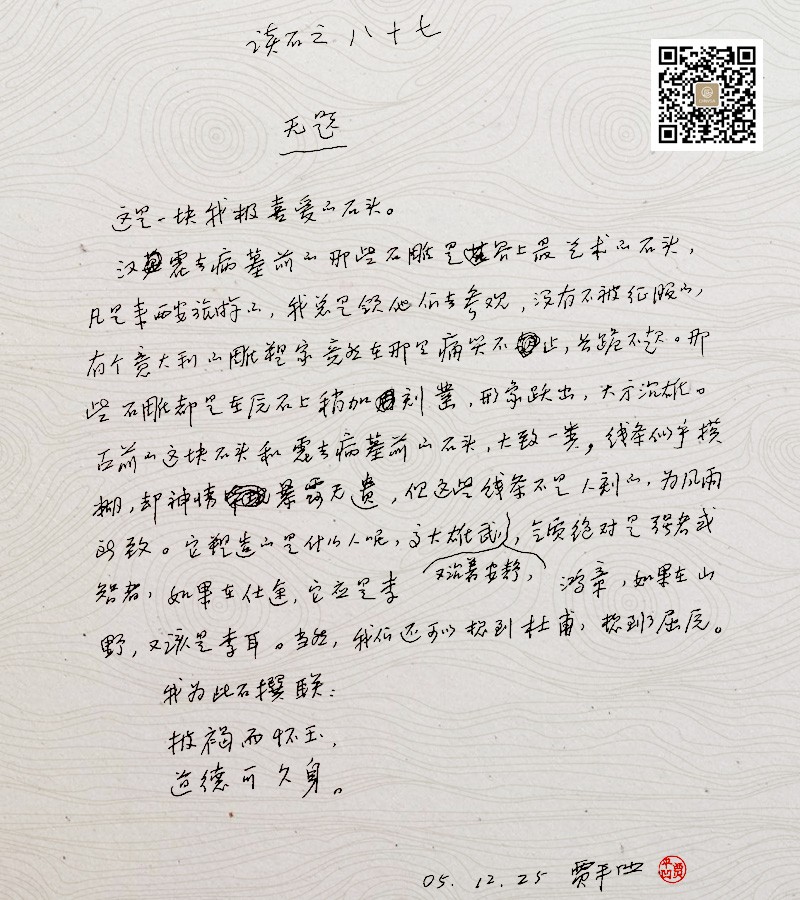 读石之八十七
无题
这是一块我极喜爱的石头。
汉霍去病墓前的那些石雕是世界上最艺术的石头，
凡是来西安旅游的，我总是领他们去参观，没有不被征服的，
有个意大利的雕塑家竟然在那里痛哭不止，长跪不起。那
些石雕却是在原石上稍加刻凿，形象跃出，大方沉雄。
石前的这块石头和霍去病墓前的石头，大致一类，线条似乎模
糊，却神情暴露无遗，但这些线条不是人刻的，为风雨
所致。它塑造的是什么人呢，高大雄武，气质绝对是强者或
又沉着安静，
智者，如果在仕途，它应是李鸿章，如果在山
野，又该是李耳。当然，我们还可以想到杜甫，想到了屈原。
我为此石撰联：
披褐而怀玉，
道德可久身。
05.12.25 贾平凹
贾平凹